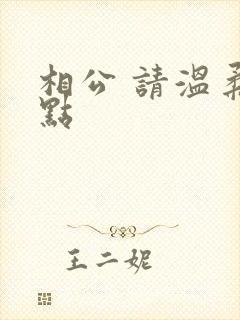 相公 請溫柔
點
王二妮